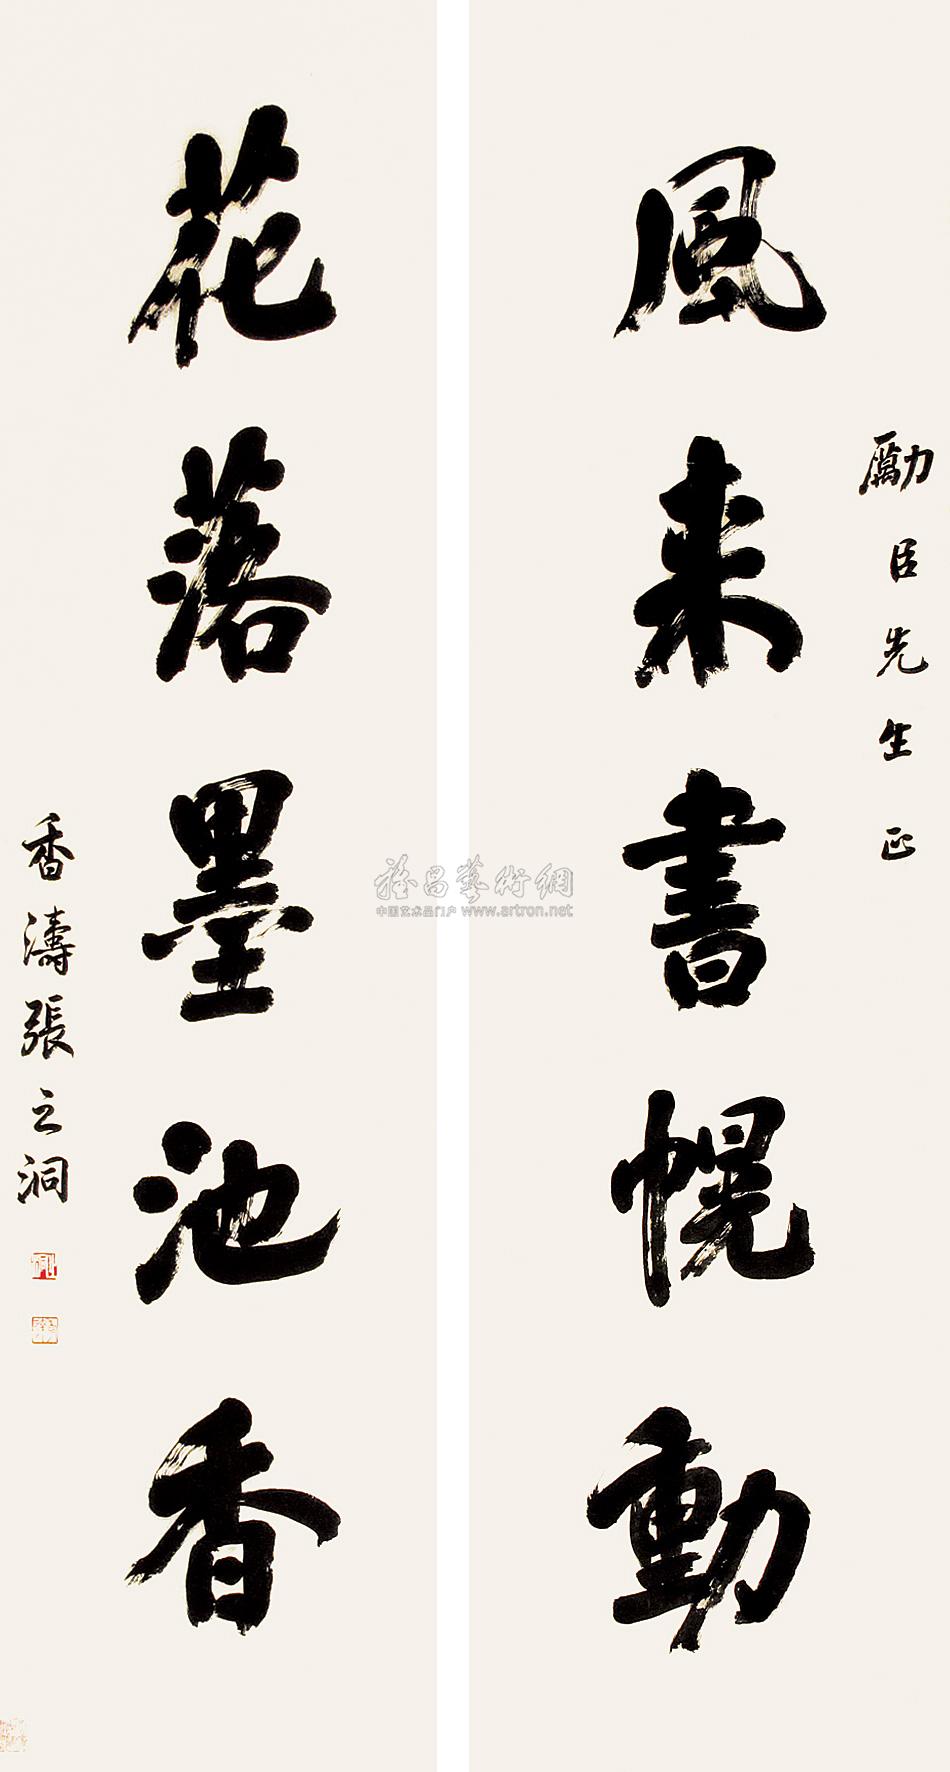 勵臣先生正
風来書幌動
花落墨池香
香濤張之洞
雅昌藝術網
中国艺术品门户 www.artron.net